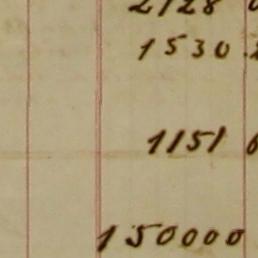 2128
1530
1151
150000